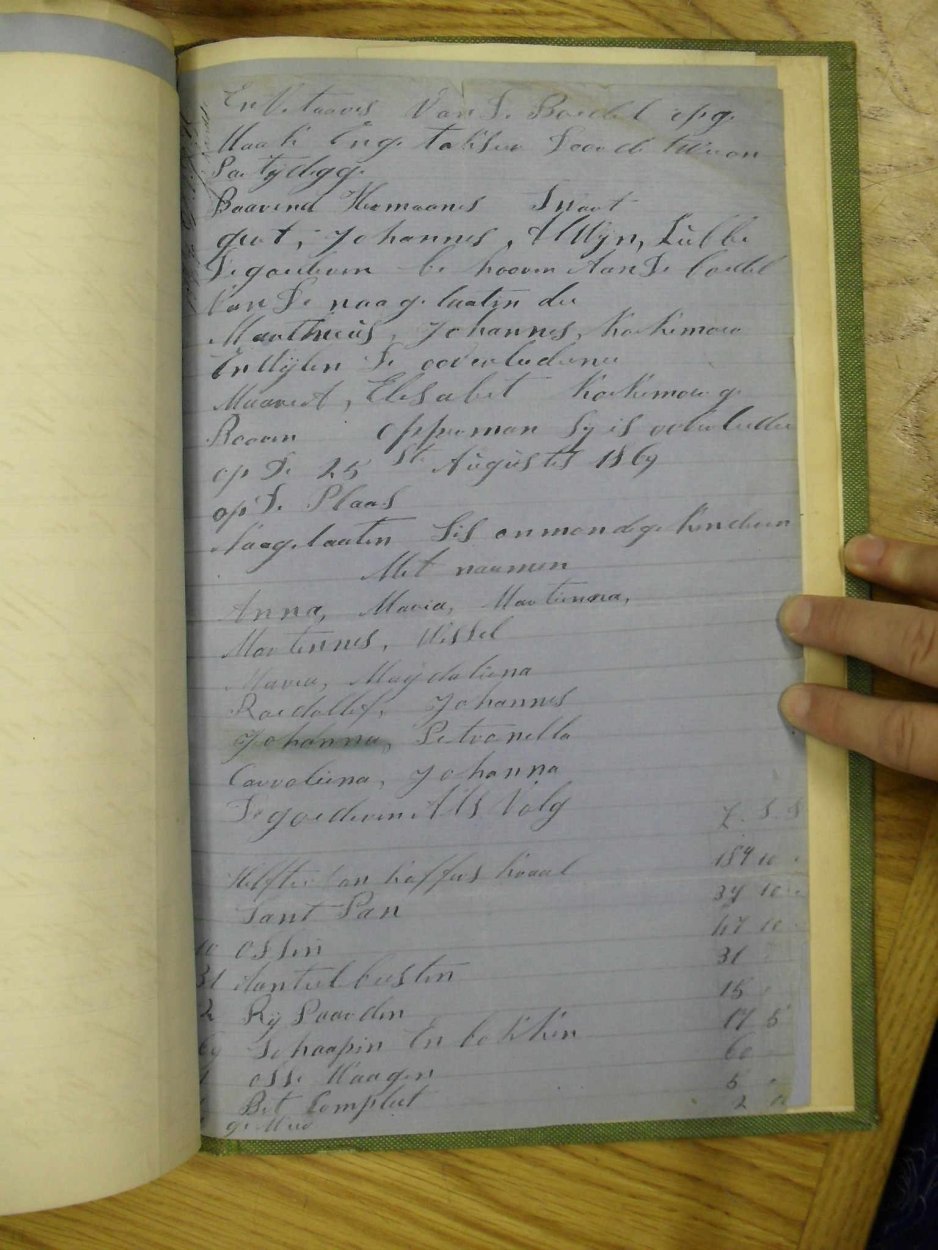 En Vetaares Van De Boedel op ge
Maak En ge takseer Door de
Baavend Hermaanes Swart
gert, Johannes, Willyn, Lubbe
De goederen be hooren Aan De boedel
Van De naa ge laaten der
Maarthenis, Johannes, Koekemoer
En Wylen De ooverledene
Maaret, Elesabet Koekemoer ge
Booren Opperman Sy is ooverleden
op De 25 Ste Augustes 1869
op De Plaas
Naagelaaten Ses onmondege kinderen
Met naamen
Anna, Maria, Martienna,
Martinnes, Wessel
Maria, Magdaliena
Roedollef, Johannes
Johanna, Petronella
Carroliena, Johanna
De goederen Als Volg
£ S D
Helfte Van kaffers kraal 187 10
Sant Pan 37 10
10 Ossen 47 10
31 Aanteel beesten 31
2 Ry Paarden 15
69 Schaapen En bokken 17 5
1 Osse Waagen 60
Bet Compleet 5
2